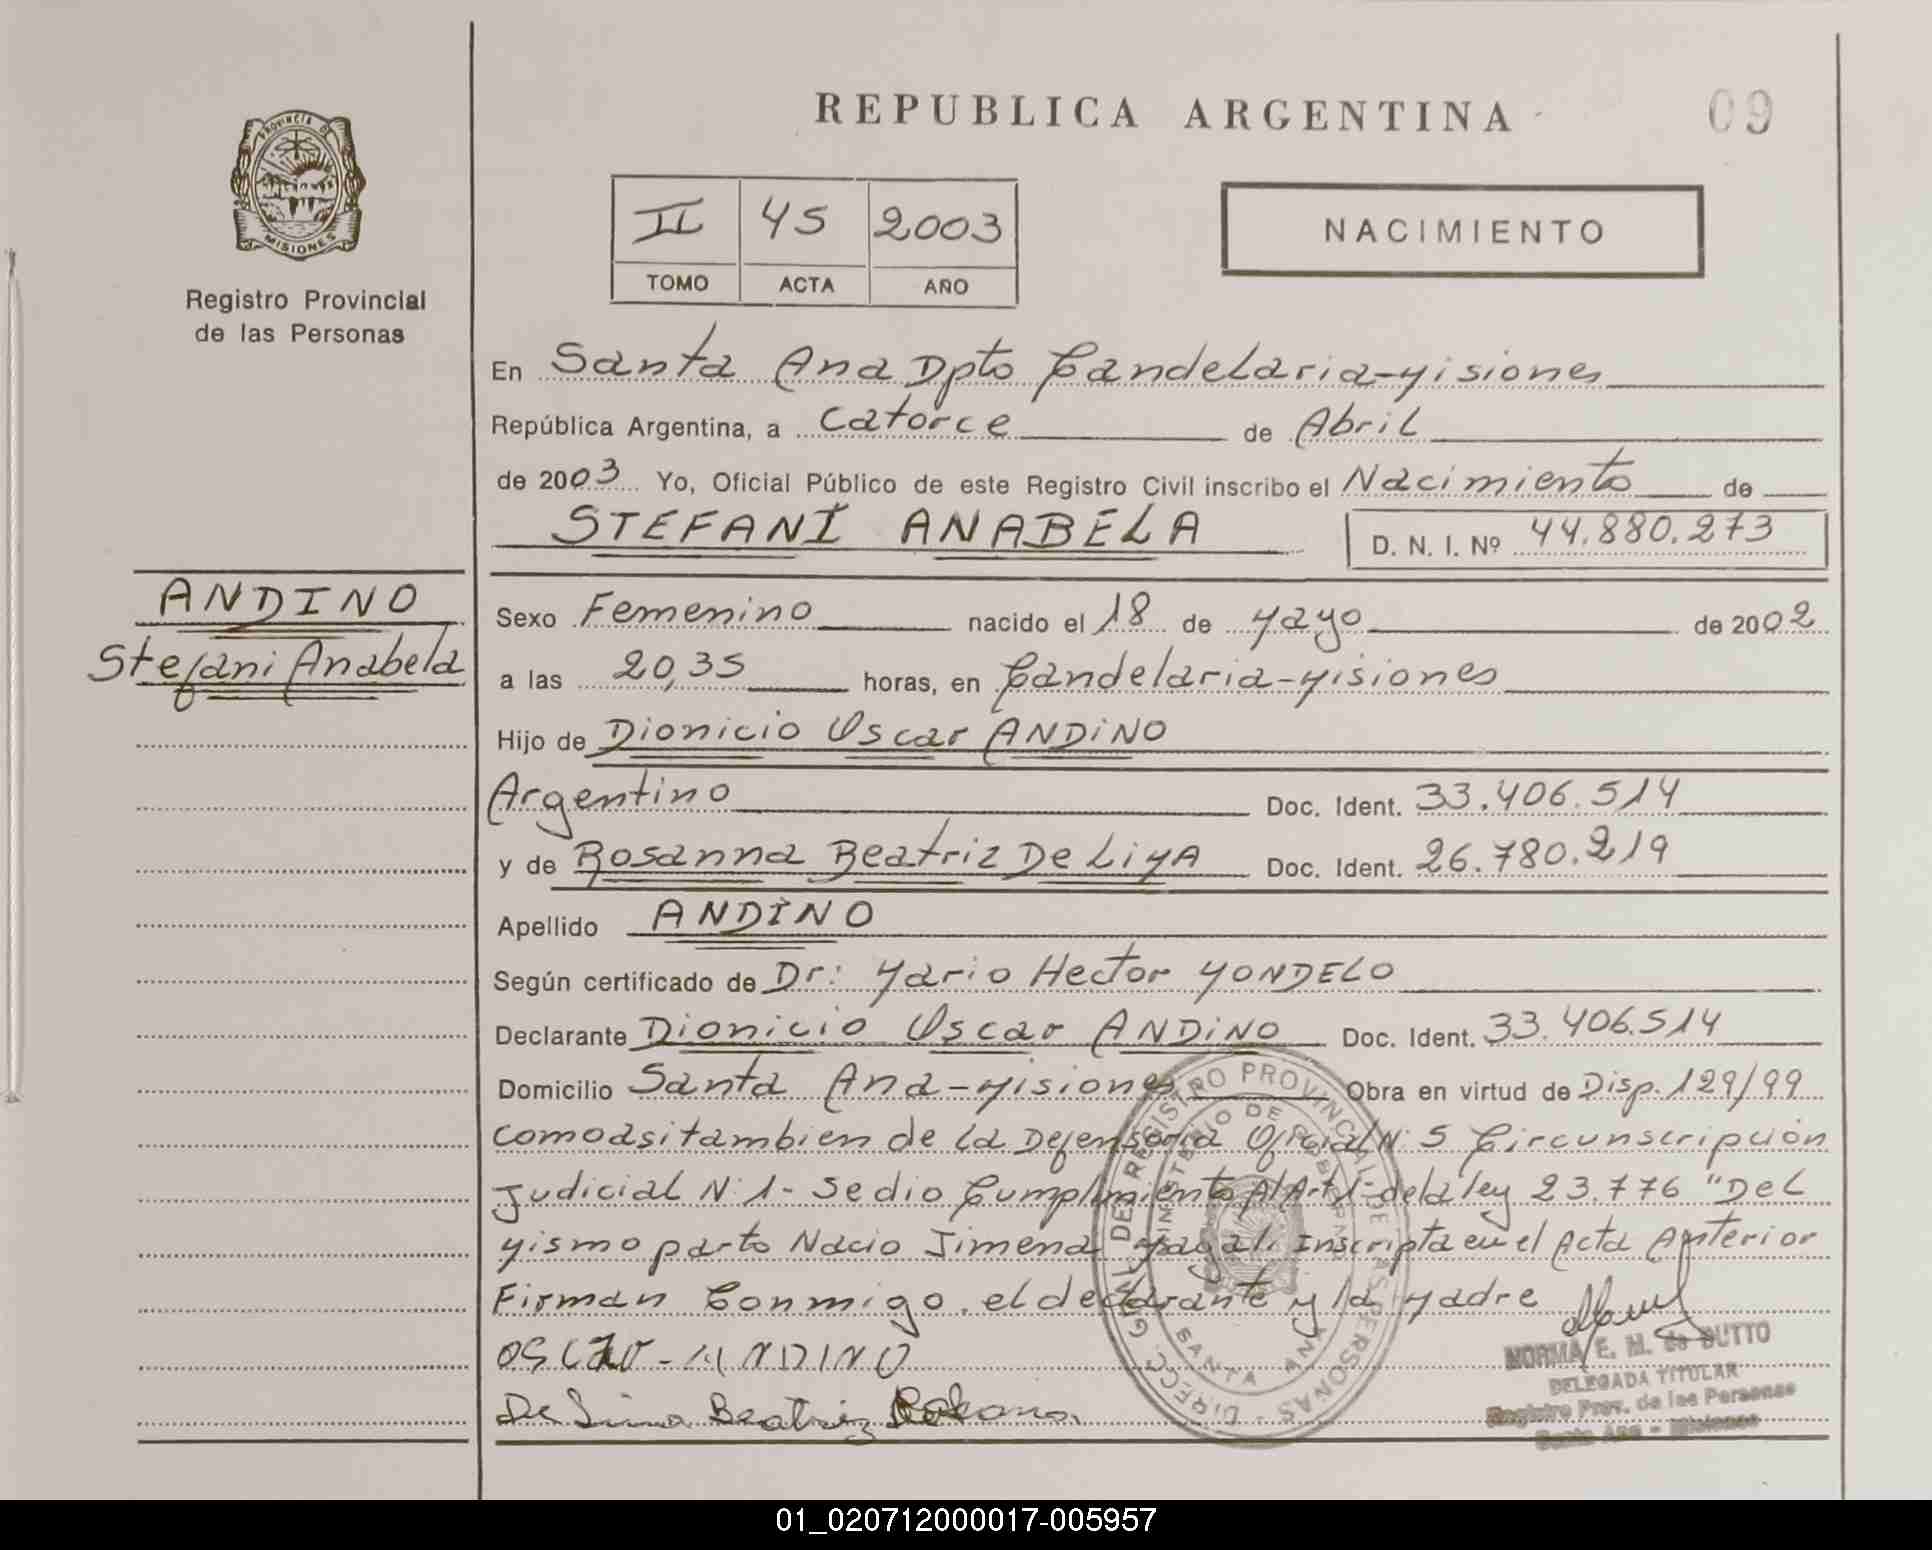 REPUBLICA ARGENTINA
09
PROVINCIA DE
MISIONES
Registro Provincial
de las Personas
II 45 2003
TOMO ACTA AÑO
NACIMIENTO
En Santa Ana Dpto Candelaria-Misiones
República Argentina, a Catorce de Abril
de 2003 Yo, Oficial Público de este Registro Civil inscribo el Nacimiento de
STEFANI ANABELA D. N. I. Nº 44.880.273
ANDINO
Stefani Anabela
Sexo Femenino nacido el 18 de Mayo de 2002
a las 20,35 horas, en Candelaria-Misiones
Hijo de Dionicio Oscar ANDINO
Argentino Doc. Ident. 33.406.514
y de Rosanna Beatriz De LiMA Doc. Ident. 26.780.219
Apellido ANDINO
Según certificado de Dr: Mario Hector MONDELO
Declarante Dionicio Oscar ANDINO Doc. Ident. 33.406.514
Domicilio Santa Ana-Misiones Obra en virtud de Disp. 129/99
comoasitambien de la Defensoria Oficial N: 5 Circunscripción
Judicial N: 1- Se dio Cumplimiento Al Art 1- de la ley 23.776 "Del
Mismo parto Nacio Jimena Magali inscripta en el Acta Anterior
Firman Conmigo. el declarante y la Madre
OSCAR-ANDINO
De Lima Beatriz
DIRECC. GRAL. DEL REGISTRO PROVINCIAL DE LAS PERSONAS
MINISTERIO DE GOBIERNO
SANTA ANA
NORMA E. M. de DUTTO
DELEGADA TITULAR
Registro Prov. de las Personas
Santa Ana - Misiones
01_020712000017-005957